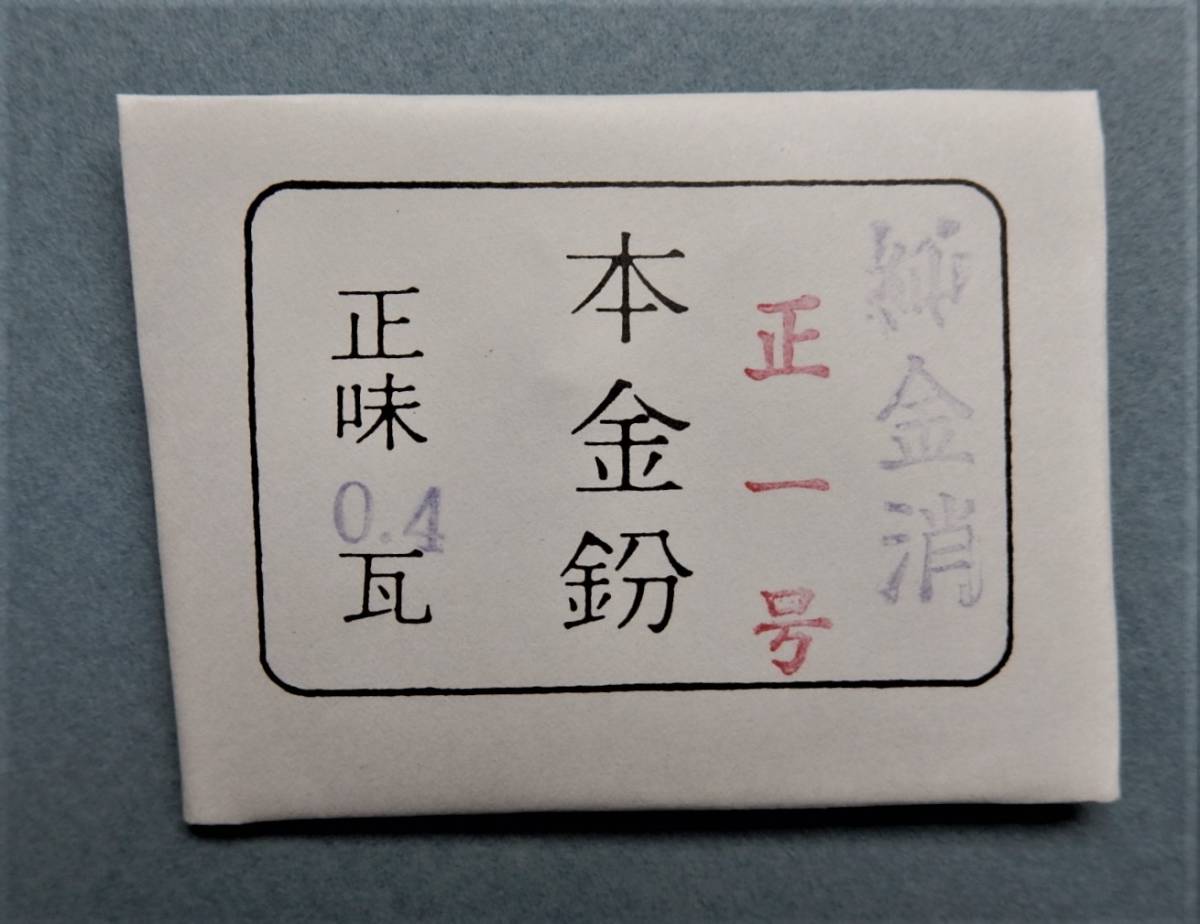 金消
正一号
本金鈖
正味0.4瓦